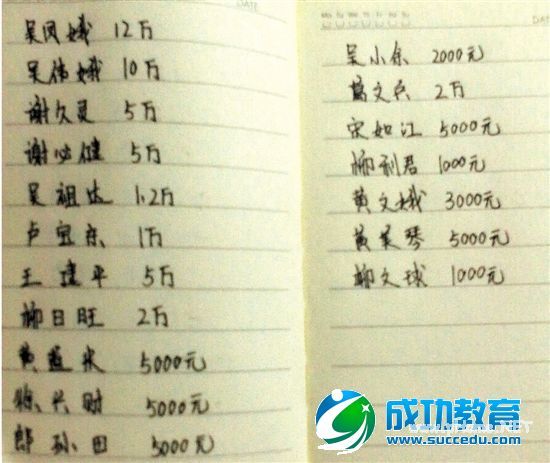 DATE
吴凤娥 12万
吴伟娥 10万
谢久灵 5万
谢必健 5万
吴祖达 1.2万
卢宝东 1万
王建平 5万
柳日旺 2万
黄 5000元
徐兴财 5000元
郎孙田 5000元
吴小余 2000元
葛文兵 2万
宋如江 5000元
柳利君 1000元
黄文娥 3000元
黄美琴 5000元
柳文球 1000元
成功教育
www.succedu.com